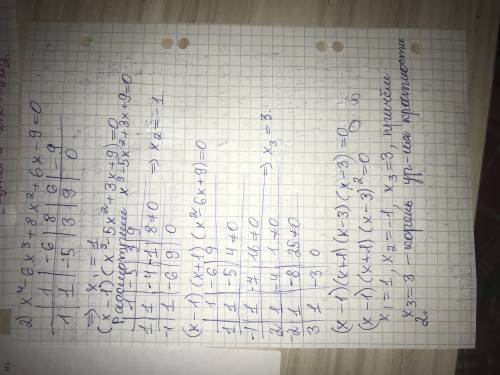 2) x⁴-6x³+8x²+6x-9=0
1 | -6 | 8 | 6 | -9
1 | 1 | -5 | 3 | 9 | 0
⇒ x₁=1
(x-1)(x³-5x²+3x+9)=0
Рассмотрим x³-5x²+3x+9=0
1 | -5 | 3 | 9
1 | 1 | -4 | -1 | 8≠0
-1 | 1 | -6 | 9 | 0 ⇒ x₂=-1
(x-1)(x+1)(x²-6x+9)=0
1 | -6 | 9
1 | 1 | -5 | 4≠0
-1 | 1 | -7 | 16≠0
2 | 1 | -4 | 1≠0 ⇒ x₃=3.
-2 | 1 | -8 | 25≠0
3 | 1 | -3 | 0
(x-1)(x+1)(x-3)(x-3)=0
(x-1)(x+1)(x-3)²=0
x=1, x₂=-1, x₃=3, причём
x₃=3 - корень ур-ния кратности
2.